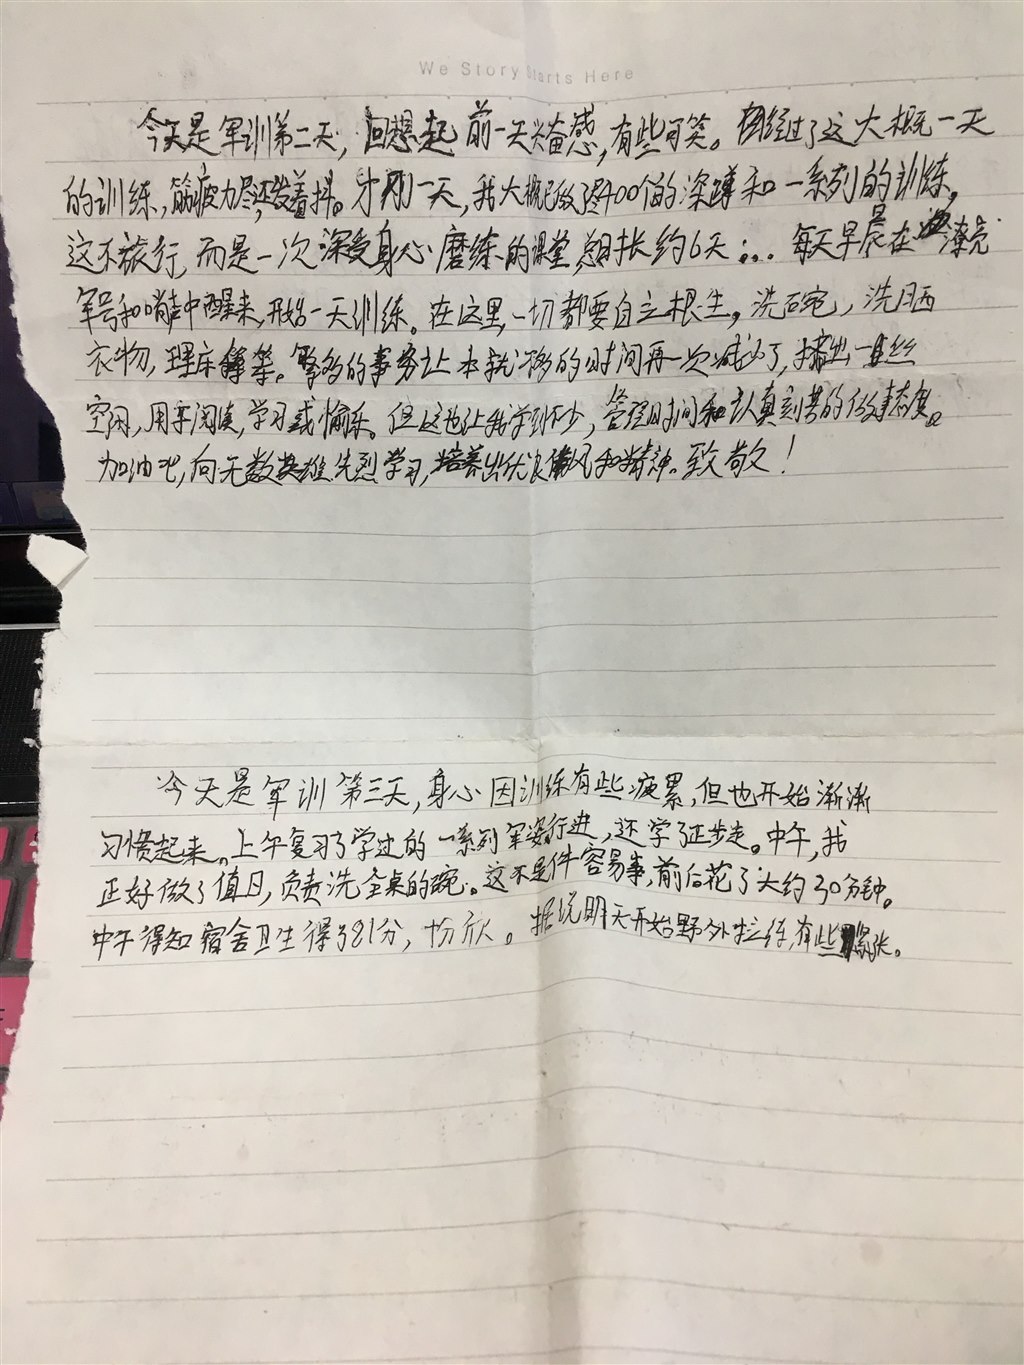 We Story Starts Here
今天是军训第二天，回想起前一天兴奋感，有些可笑。经过了这大概一天
的训练，筋疲力尽，还发着抖。才刚一天，我大概已做了400个的深蹲和一系列的训练，
这不旅行，而是一次深受身心磨练的课堂，总时长约6天：… 每天早晨在嘹亮
军号和哨声中醒来，开始一天训练。在这里，一切都要自立根生，洗碗，洗晒
衣物，理床铺等。繁多的事务让本就不多的时间再一次减少了，挤出一丝
空闲，用来阅读，学习或愉乐。但这也让我学到不少，管理时间和认真刻苦的做事态度。
加油吧，向无数英雄先烈学习，培养出优良作风和精神。致敬！
今天是军训第三天，身心因训练有些疲累，但也开始渐渐
习惯起来。上午复习了学过的一系列军姿行进，还学了正步走。中午，我
正好做了值日，负责洗全桌的碗。这不是件容易事，前后花了大约30分钟。
中午得知宿舍卫生得了81分，十分欣。据说明天开始野外拉练，有些紧张。